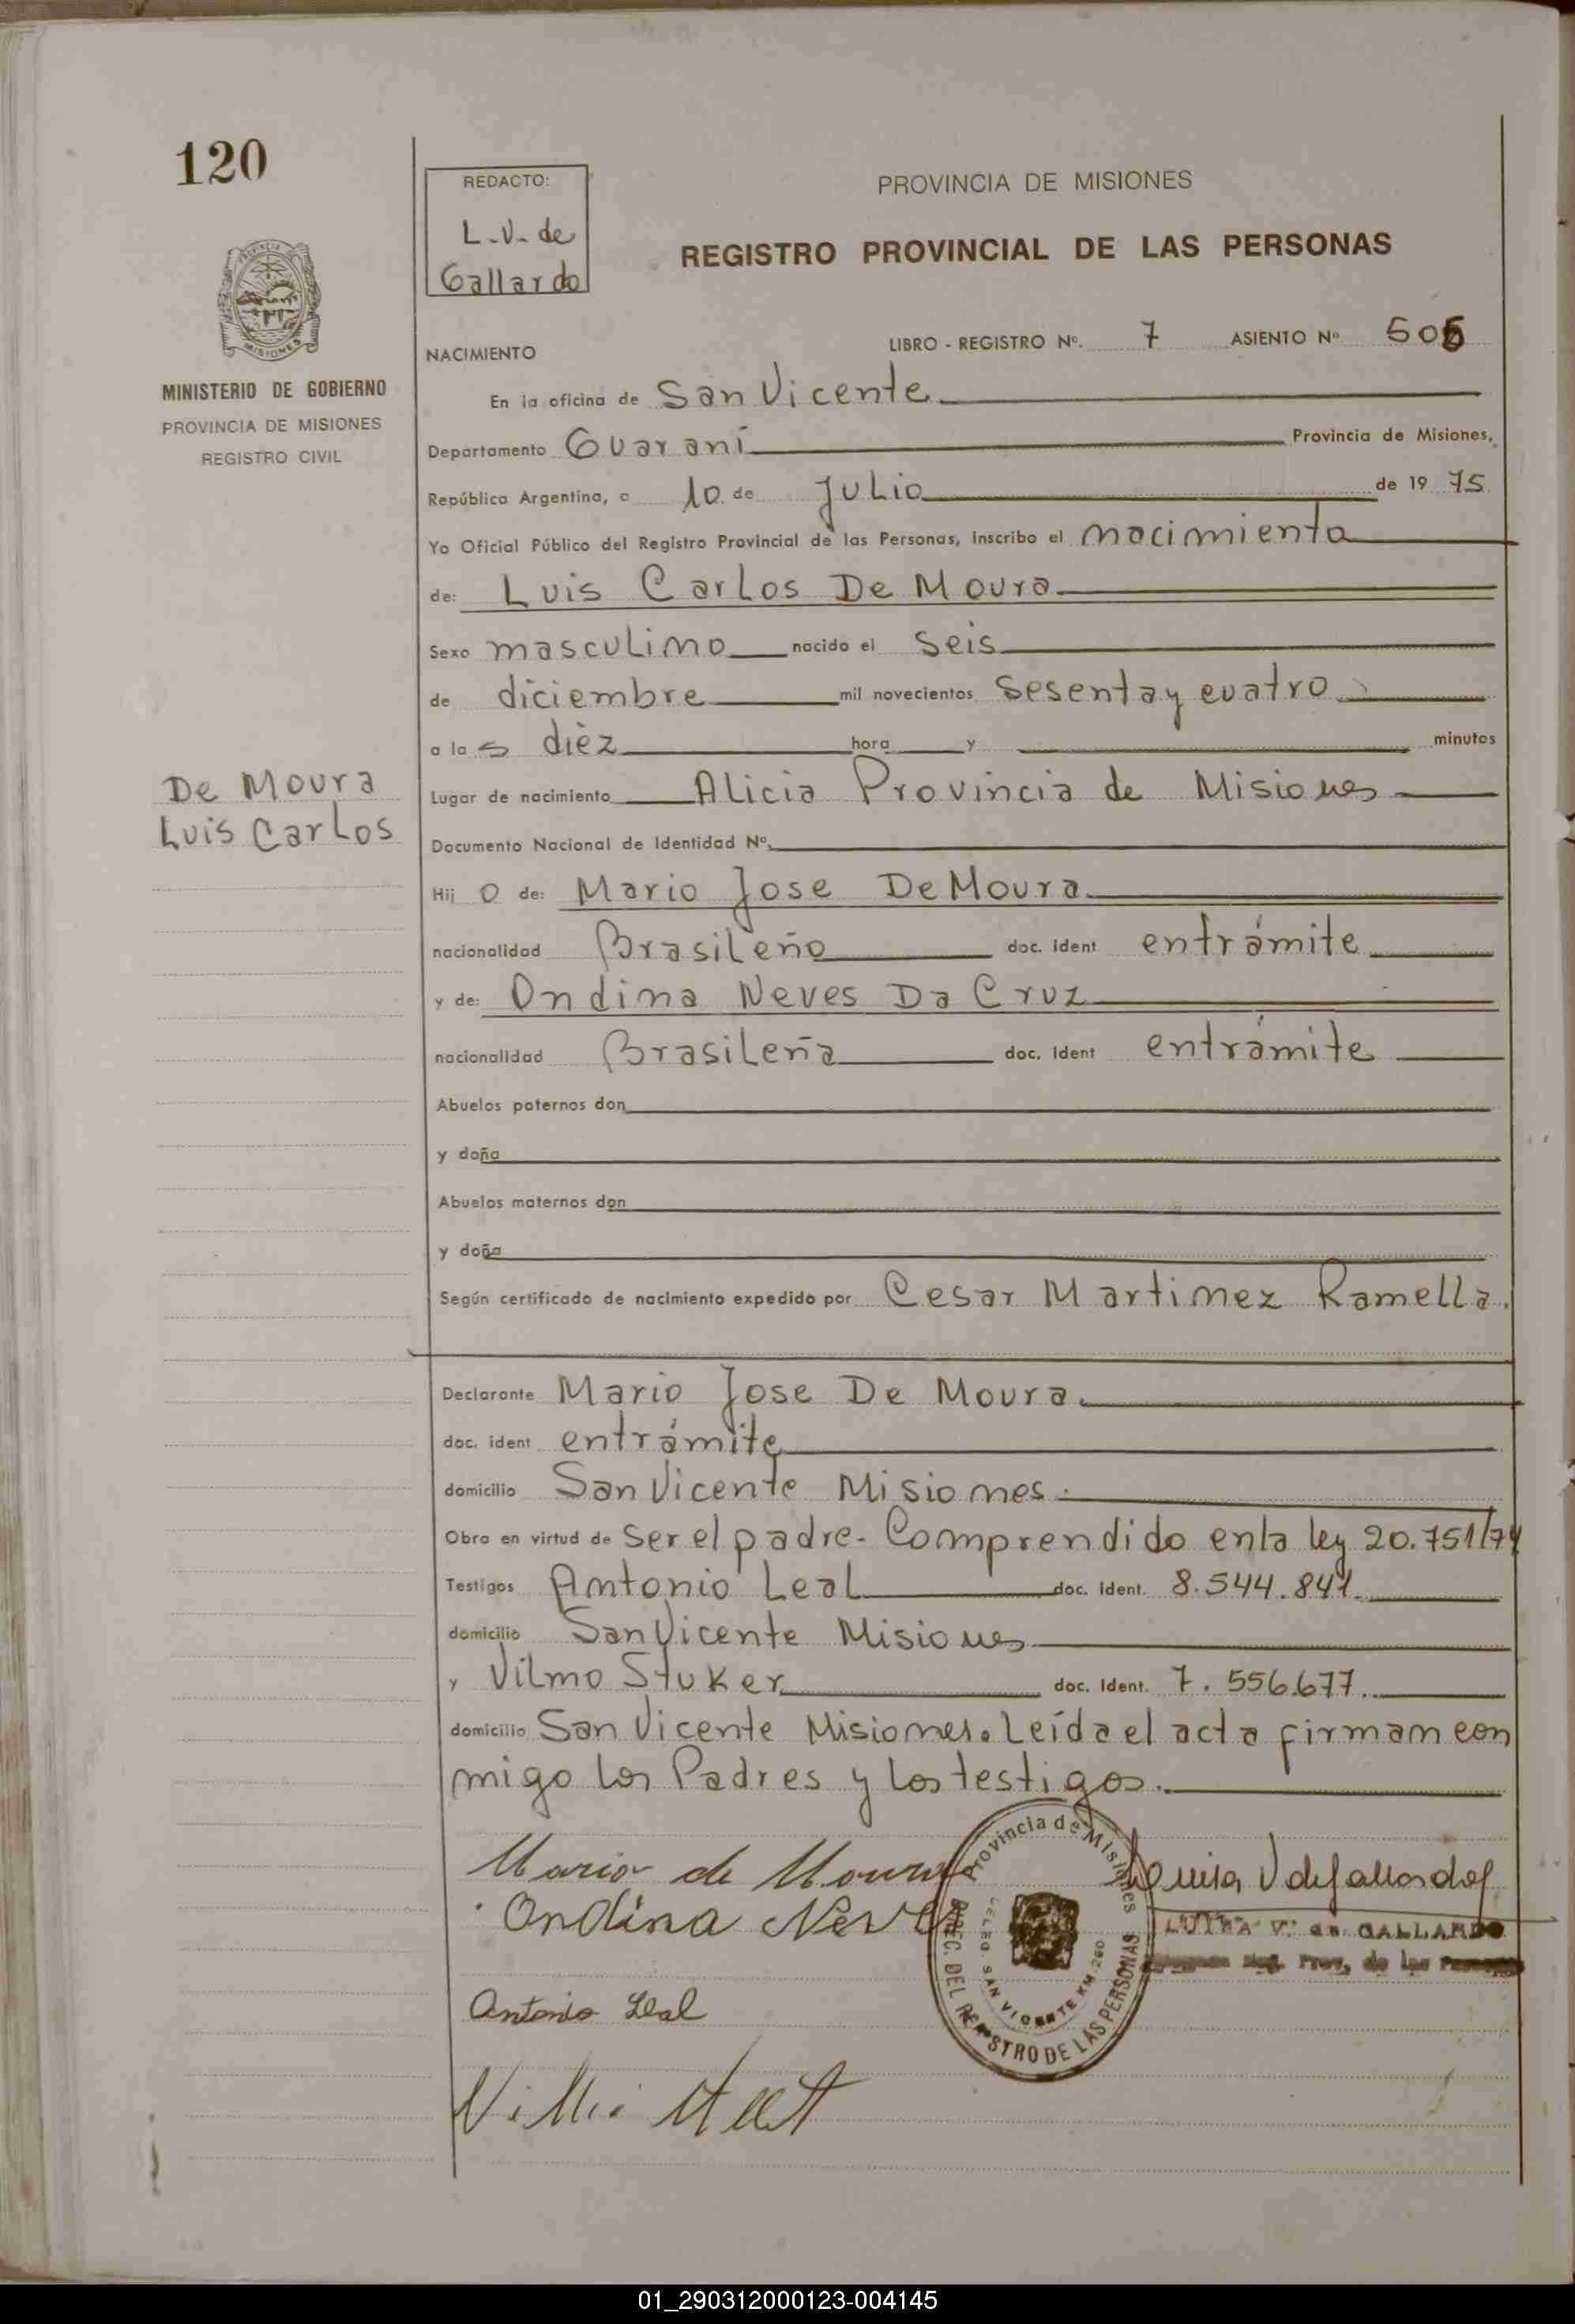 120
REDACTO:
L.V. de
Gallardo
PROVINCIA DE MISIONES
REGISTRO PROVINCIAL DE LAS PERSONAS
PROVINCIA
MISIONES
MINISTERIO DE GOBIERNO
PROVINCIA DE MISIONES
REGISTRO CIVIL
NACIMIENTO
LIBRO - REGISTRO Nº. 7 ASIENTO Nº 506
En la oficina de San Vicente
Departamento Guaraní Provincia de Misiones,
República Argentina, a 10 de Julio de 19 75
Yo Oficial Público del Registro Provincial de las Personas, inscribo el nacimiento
de: Luis Carlos De Moura
Sexo masculino nacido el seis
de diciembre mil novecientos sesenta y cuatro
a la s diez hora y minutos
De Moura
Luis Carlos
Lugar de nacimiento Alicia Provincia de Misiones
Documento Nacional de Identidad Nº.
Hij o de: Mario Jose De Moura
nacionalidad Brasileño doc. ident entrámite
y de: Ondina Neves Da Cruz
nacionalidad Brasileña doc. ident entrámite
Abuelos paternos don
y doña
Abuelos maternos don
y doña
Según certificado de nacimiento expedido por Cesar Martinez Ramella.
Declarante Mario Jose De Moura.
doc. ident entrámite
domicilio San Vicente Misiones.
Obra en virtud de ser el padre- Comprendido enla ley 20.751/74
Testigos Antonio Leal doc. Ident. 8.544.841.
domicilio San Vicente Misiones
y Vilmo Stuker doc. Ident. 7.556.677.
domicilio San Vicente Misiones. Leída el acta firman con
migo los Padres y los testigos.
Mario de Moura
Ondina Neves
Antonio Leal
Provincia de Misiones
DIREC. DEL REGISTRO DE LAS PERSONAS
DELEG. SAN VICENTE KM. 260
Luisa V de Gallardo
LUISA V. de GALLARDO
Reg. Prov. de las Personas
01_290312000123-004145